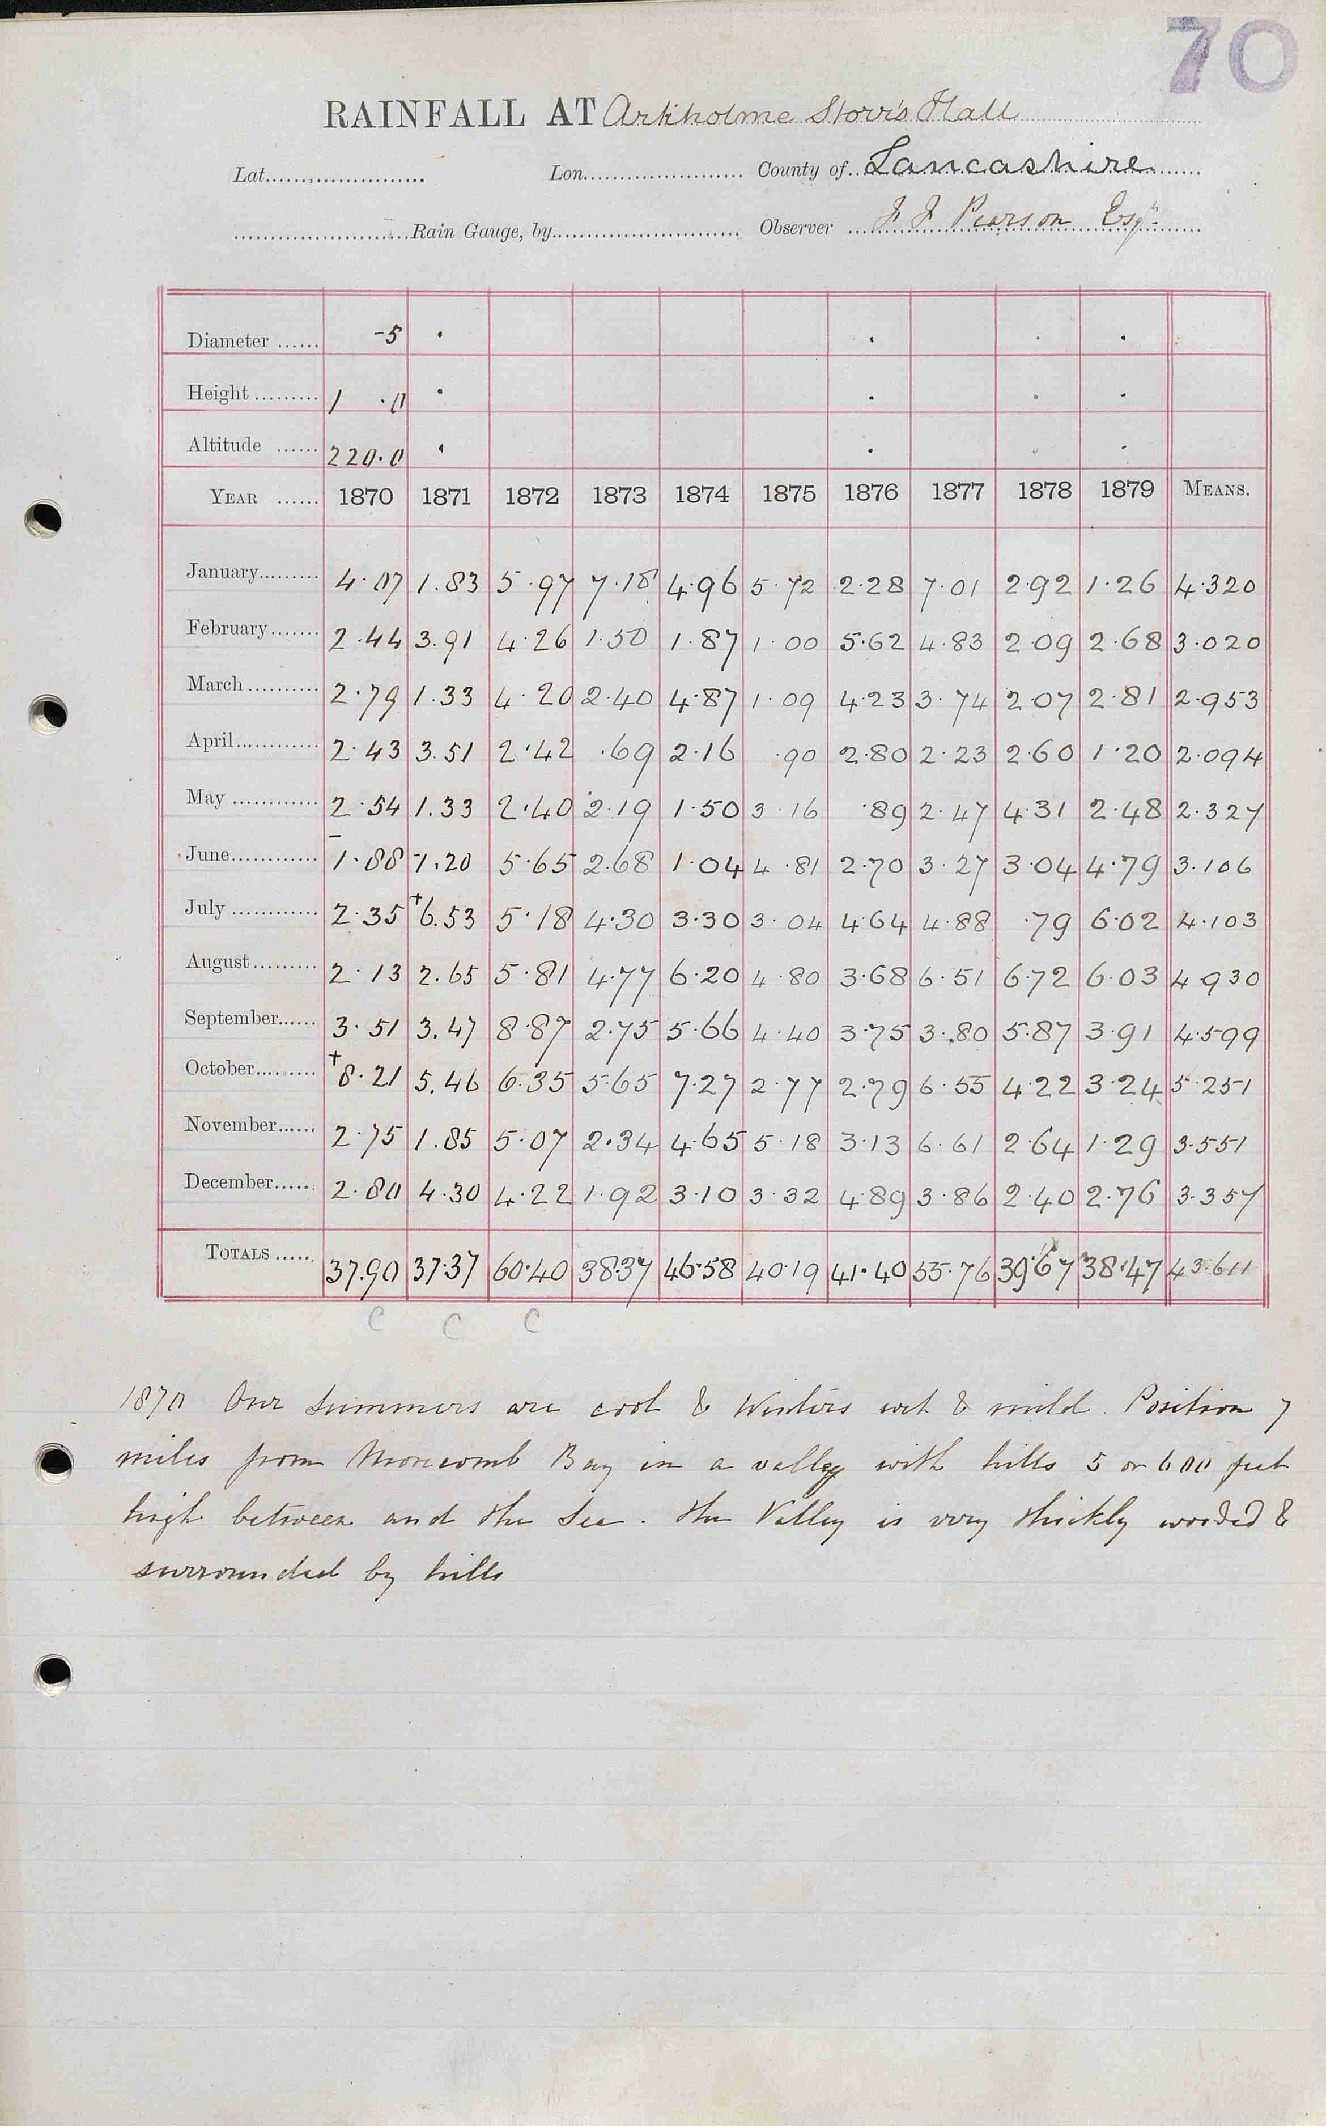 70
RAINFALL AT Arkholme Storr's Hall
Lat....................... Lon....................... County of Lancashire
.......................Rain Gauge, by........................... Observer J J Pearson Esqr
Diameter ...... -5 .
Height ......... 1 .0 .
Altitude ...... 220.0 .
YEAR ...... 1870 1871 1872 1873 1874 1875 1876 1877 1878 1879 MEANS.
January......... 4.07 1.83 5.97 7.18 4.96 5.72 2.28 7.01 2.92 1.26 4.320
February....... 2.44 3.91 4.26 1.50 1.87 1.00 5.62 4.83 2.09 2.68 3.020
March .......... 2.79 1.33 4.20 2.40 4.87 1.09 4.23 3.74 2.07 2.81 2.953
April............ 2.43 3.51 2.42 .69 2.16 .90 2.80 2.23 2.60 1.20 2.094
May ............ 2.54 1.33 2.40 2.19 1.50 3.16 .89 2.47 4.31 2.48 2.327
June............ 1.88 1.20 5.65 2.68 1.04 4.81 2.70 3.27 3.04 4.79 3.106
July ............ 2.35 +6.53 5.18 4.30 3.30 3.04 4.64 4.88 .79 6.02 4.103
August......... 2.13 2.65 5.81 4.77 6.20 4.80 3.68 6.51 6.72 6.03 4.930
September...... 3.51 3.47 8.87 2.75 5.66 4.40 3.75 3.80 5.87 3.91 4.599
October......... +8.21 5.46 6.35 5.65 7.27 2.77 2.79 6.55 4.22 3.24 5.251
November...... 2.75 1.85 5.07 2.34 4.65 5.18 3.13 6.61 2.64 1.29 3.551
December...... 2.80 4.30 4.22 1.92 3.10 3.32 4.89 3.86 2.40 2.76 3.357
TOTALS ..... 37.90 37.37 60.40 38.37 46.58 40.19 41.40 55.76 39.67 38.47 43.611
C C C
1870 Our Summers are cool & Winters wet & mild. Position 7
miles from Morecomb Bay in a valley with hills 5 or 600 feet
high between and the Sea. the Valley is very thickly wooded &
surrounded by hills